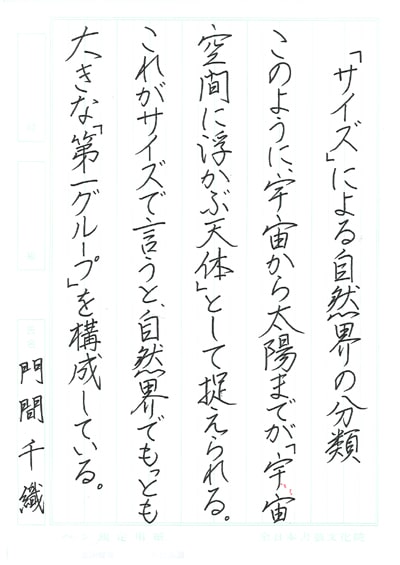 「サイズ」による自然界の分類
このように、宇宙から太陽までが「宇宙
空間に浮かぶ天体」として捉えられる。
これがサイズで言うと、自然界でもっとも
大きな「第一グループ」を構成している。
門間千織